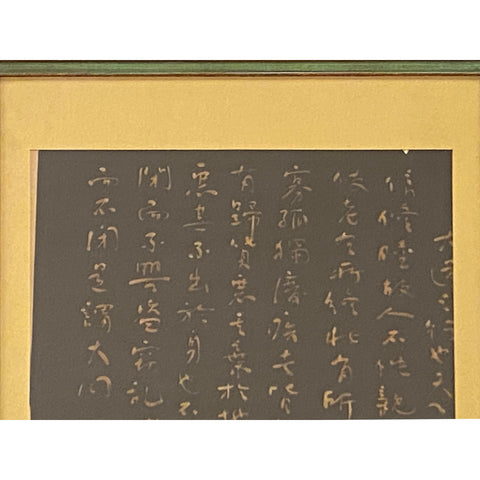 大道之行也天下
信修睦故人不獨親
使老有所終壯有所
寡孤獨廢疾者皆
有歸貨惡其棄於地
惡其不出於身也不
閉而不興盜竊亂
而不閉是謂大同